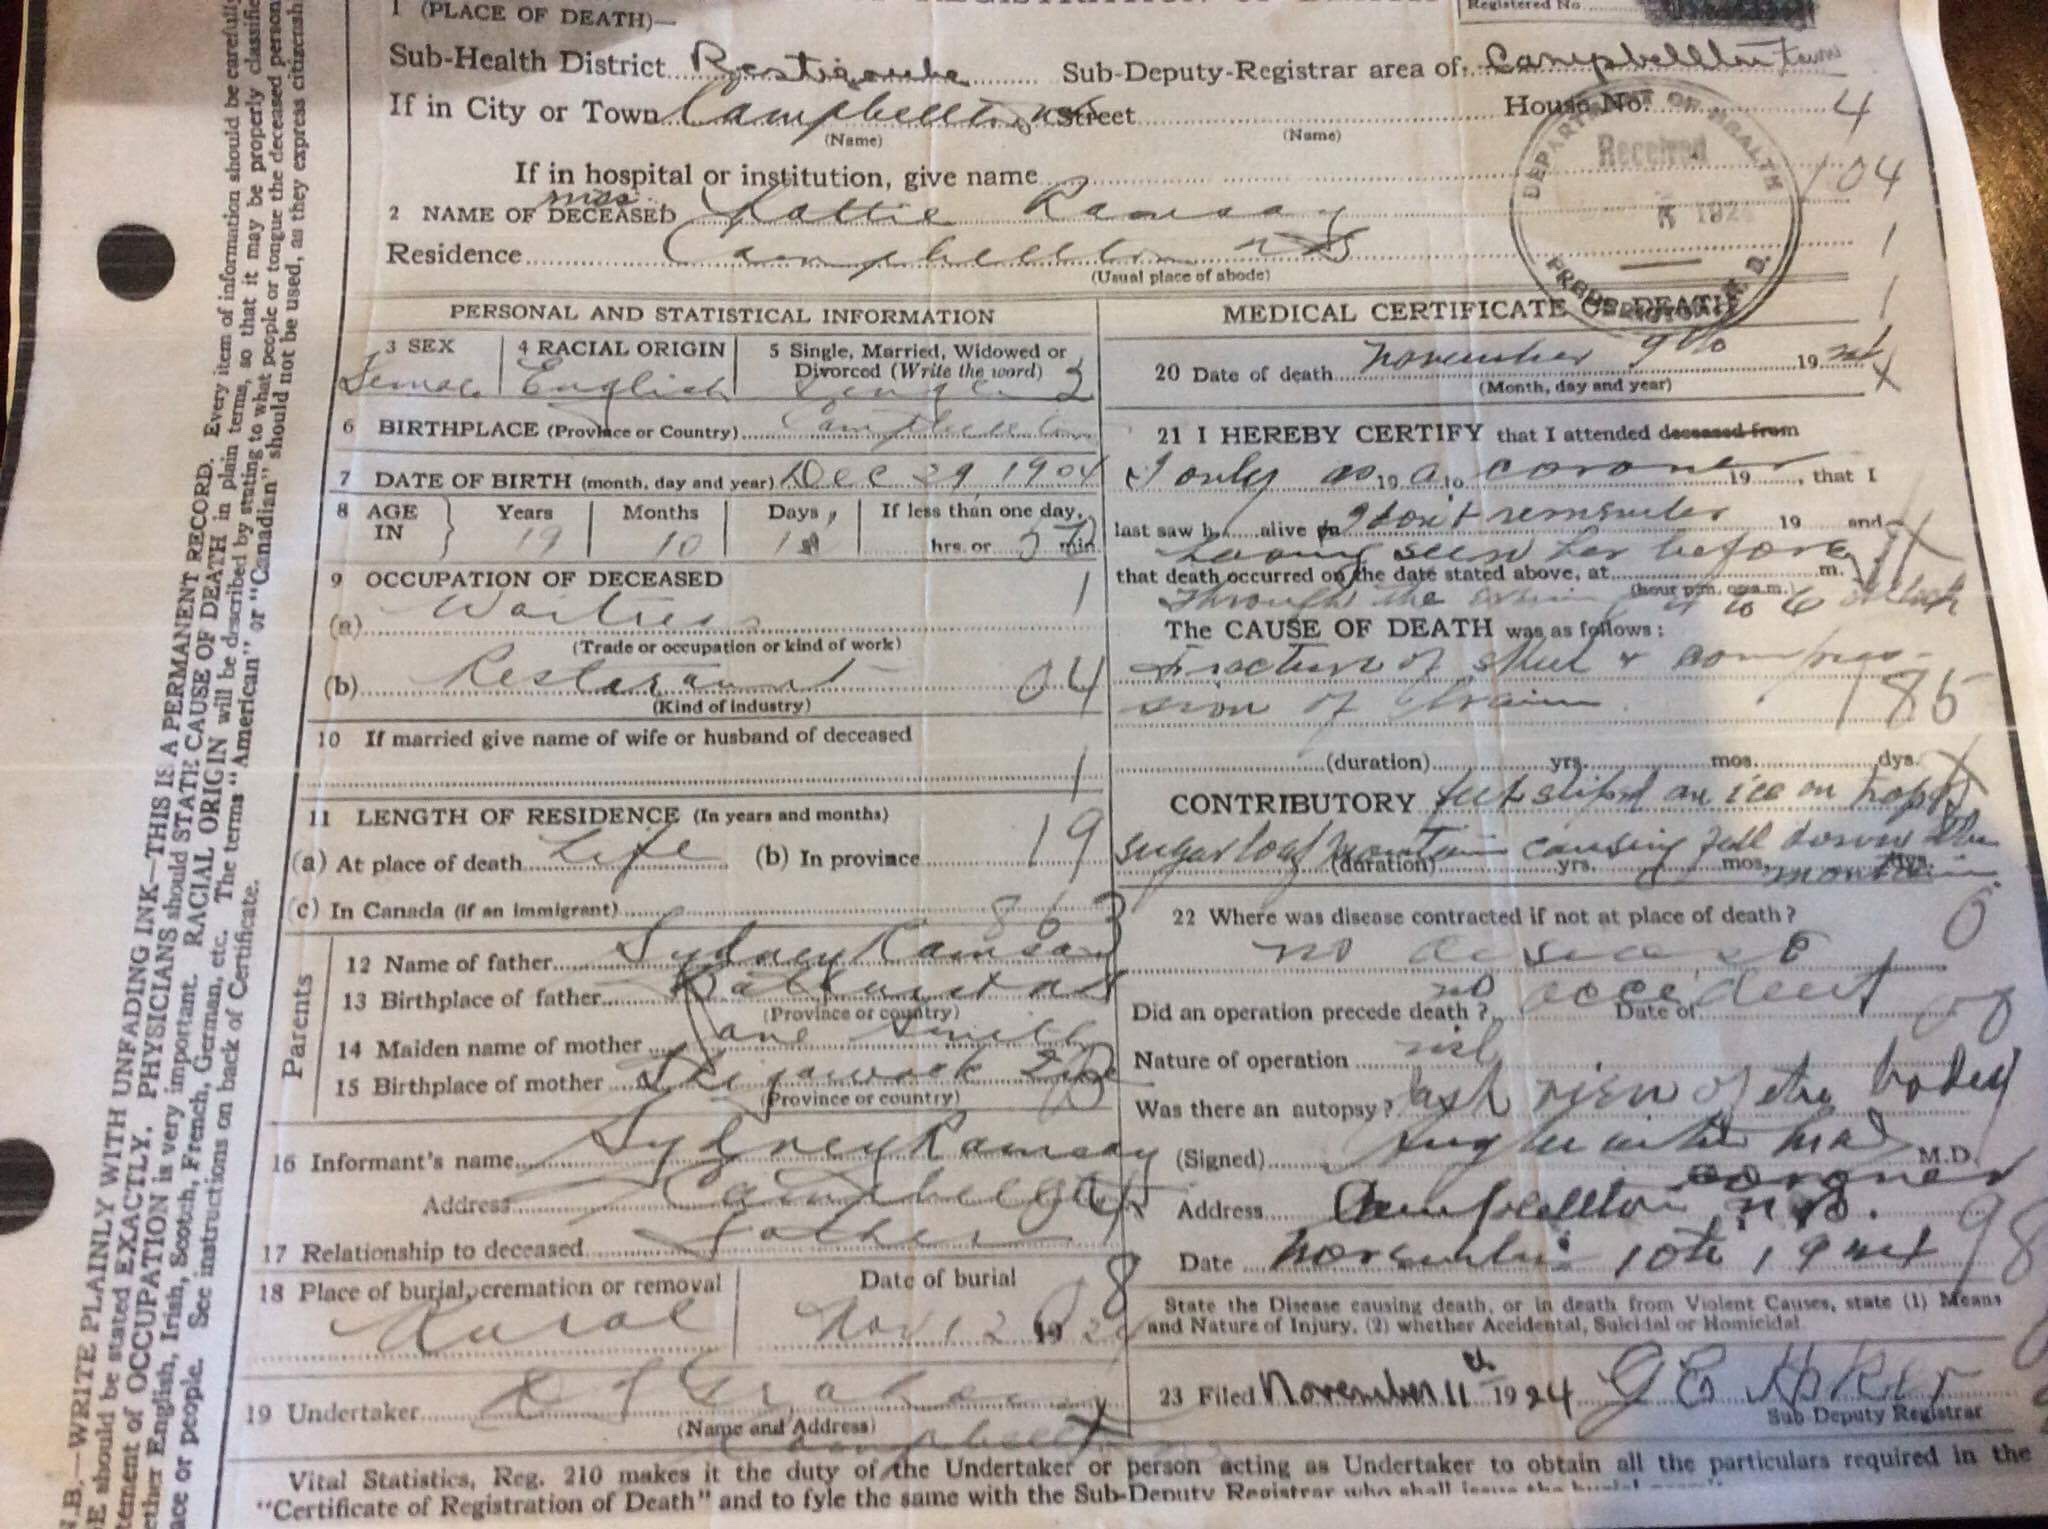 1 (PLACE OF DEATH)—
Registered No.
Sub-Health District Restigouche Sub-Deputy-Registrar area of Campbellton Town
If in City or Town Campbellton NB Street House No. 4
(Name) (Name)
If in hospital or institution, give name 104
2 NAME OF DECEASED Miss Lottie Ramsay 1
Residence Campbellton NB 1
(Usual place of abode)
DEPARTMENT OF HEALTH
Received
FREDERICTON, N. B.
PERSONAL AND STATISTICAL INFORMATION
3 SEX 4 RACIAL ORIGIN 5 Single, Married, Widowed or
Divorced (Write the word)
Female English Single
6 BIRTHPLACE (Province or Country) Campbellton
7 DATE OF BIRTH (month, day and year) Dec 29, 1904
8 AGE IN Years Months Days If less than one day,
19 10 hrs. or min.
9 OCCUPATION OF DECEASED 1
(a) Waitress
(Trade or occupation or kind of work)
(b) Restaraunt 04
(Kind of industry)
10 If married give name of wife or husband of deceased
1
11 LENGTH OF RESIDENCE (In years and months)
(a) At place of death Life (b) In province 19
(c) In Canada (if an immigrant) 863
Parents
12 Name of father Sydney Ramsay
13 Birthplace of father
(Province or country)
14 Maiden name of mother Jane Smith
15 Birthplace of mother
(Province or country)
16 Informant's name Sydney Ramsay
Address Campbellton
17 Relationship to deceased Father
18 Place of burial, cremation or removal Date of burial 8
Rural Nov 12 1924
19 Undertaker Graham
(Name and Address)
Campbellton
MEDICAL CERTIFICATE OF DEATH 1
20 Date of death November 9th 1924
(Month, day and year)
21 I HEREBY CERTIFY that I attended deceased from
I only as 19 a to coroner 19 , that I
last saw h alive on I don't remember 19 and
having seen her before
that death occurred on the date stated above, at m.
(hour p.m. or a.m.)
Through the to 6 o'clock
The CAUSE OF DEATH was as follows:
Fracture of skull & compres-
sion of brain 185
(duration) yrs. mos. dys.
CONTRIBUTORY feet sliped on ice on top of
sugarloaf mountain causing fall down the
(duration) yrs. mos. dys.
mountain
22 Where was disease contracted if not at place of death?
no disease
Did an operation precede death? no accident Date of
Nature of operation nil
Was there an autopsy? view of the body
(Signed) M.D.
coroner
Address Campbellton N.B.
Date November 10th 1924 98
State the Disease causing death, or in death from Violent Causes, state (1) Means
and Nature of Injury, (2) whether Accidental, Suicidal or Homicidal
23 Filed November 11th 1924
Sub Deputy Registrar
Vital Statistics, Reg. 210 makes it the duty of the Undertaker or person acting as Undertaker to obtain all the particulars required in the
"Certificate of Registration of Death" and to fyle the same with the Sub-Deputy Registrar who shall issue the burial
N.B.—WRITE PLAINLY WITH UNFADING INK—THIS IS A PERMANENT RECORD. Every item of information should be carefully
should be stated EXACTLY. PHYSICIANS should STATE CAUSE OF DEATH in plain terms, so that it may be properly classified
tement of OCCUPATION is very important. RACIAL ORIGIN will be described by stating to what people or tongue the deceased person
ether English, Irish, Scotch, French, German, etc. The terms "American" or "Canadian" should not be used, as they express citizenship
ace or people. See instructions on back of Certificate.